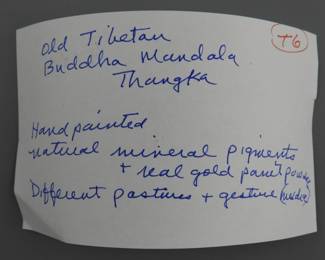 old Tibetan
T6
Buddha Mandala
Thangka
Handpainted
natural mineral pigments
+ real gold
Different postures + gesture